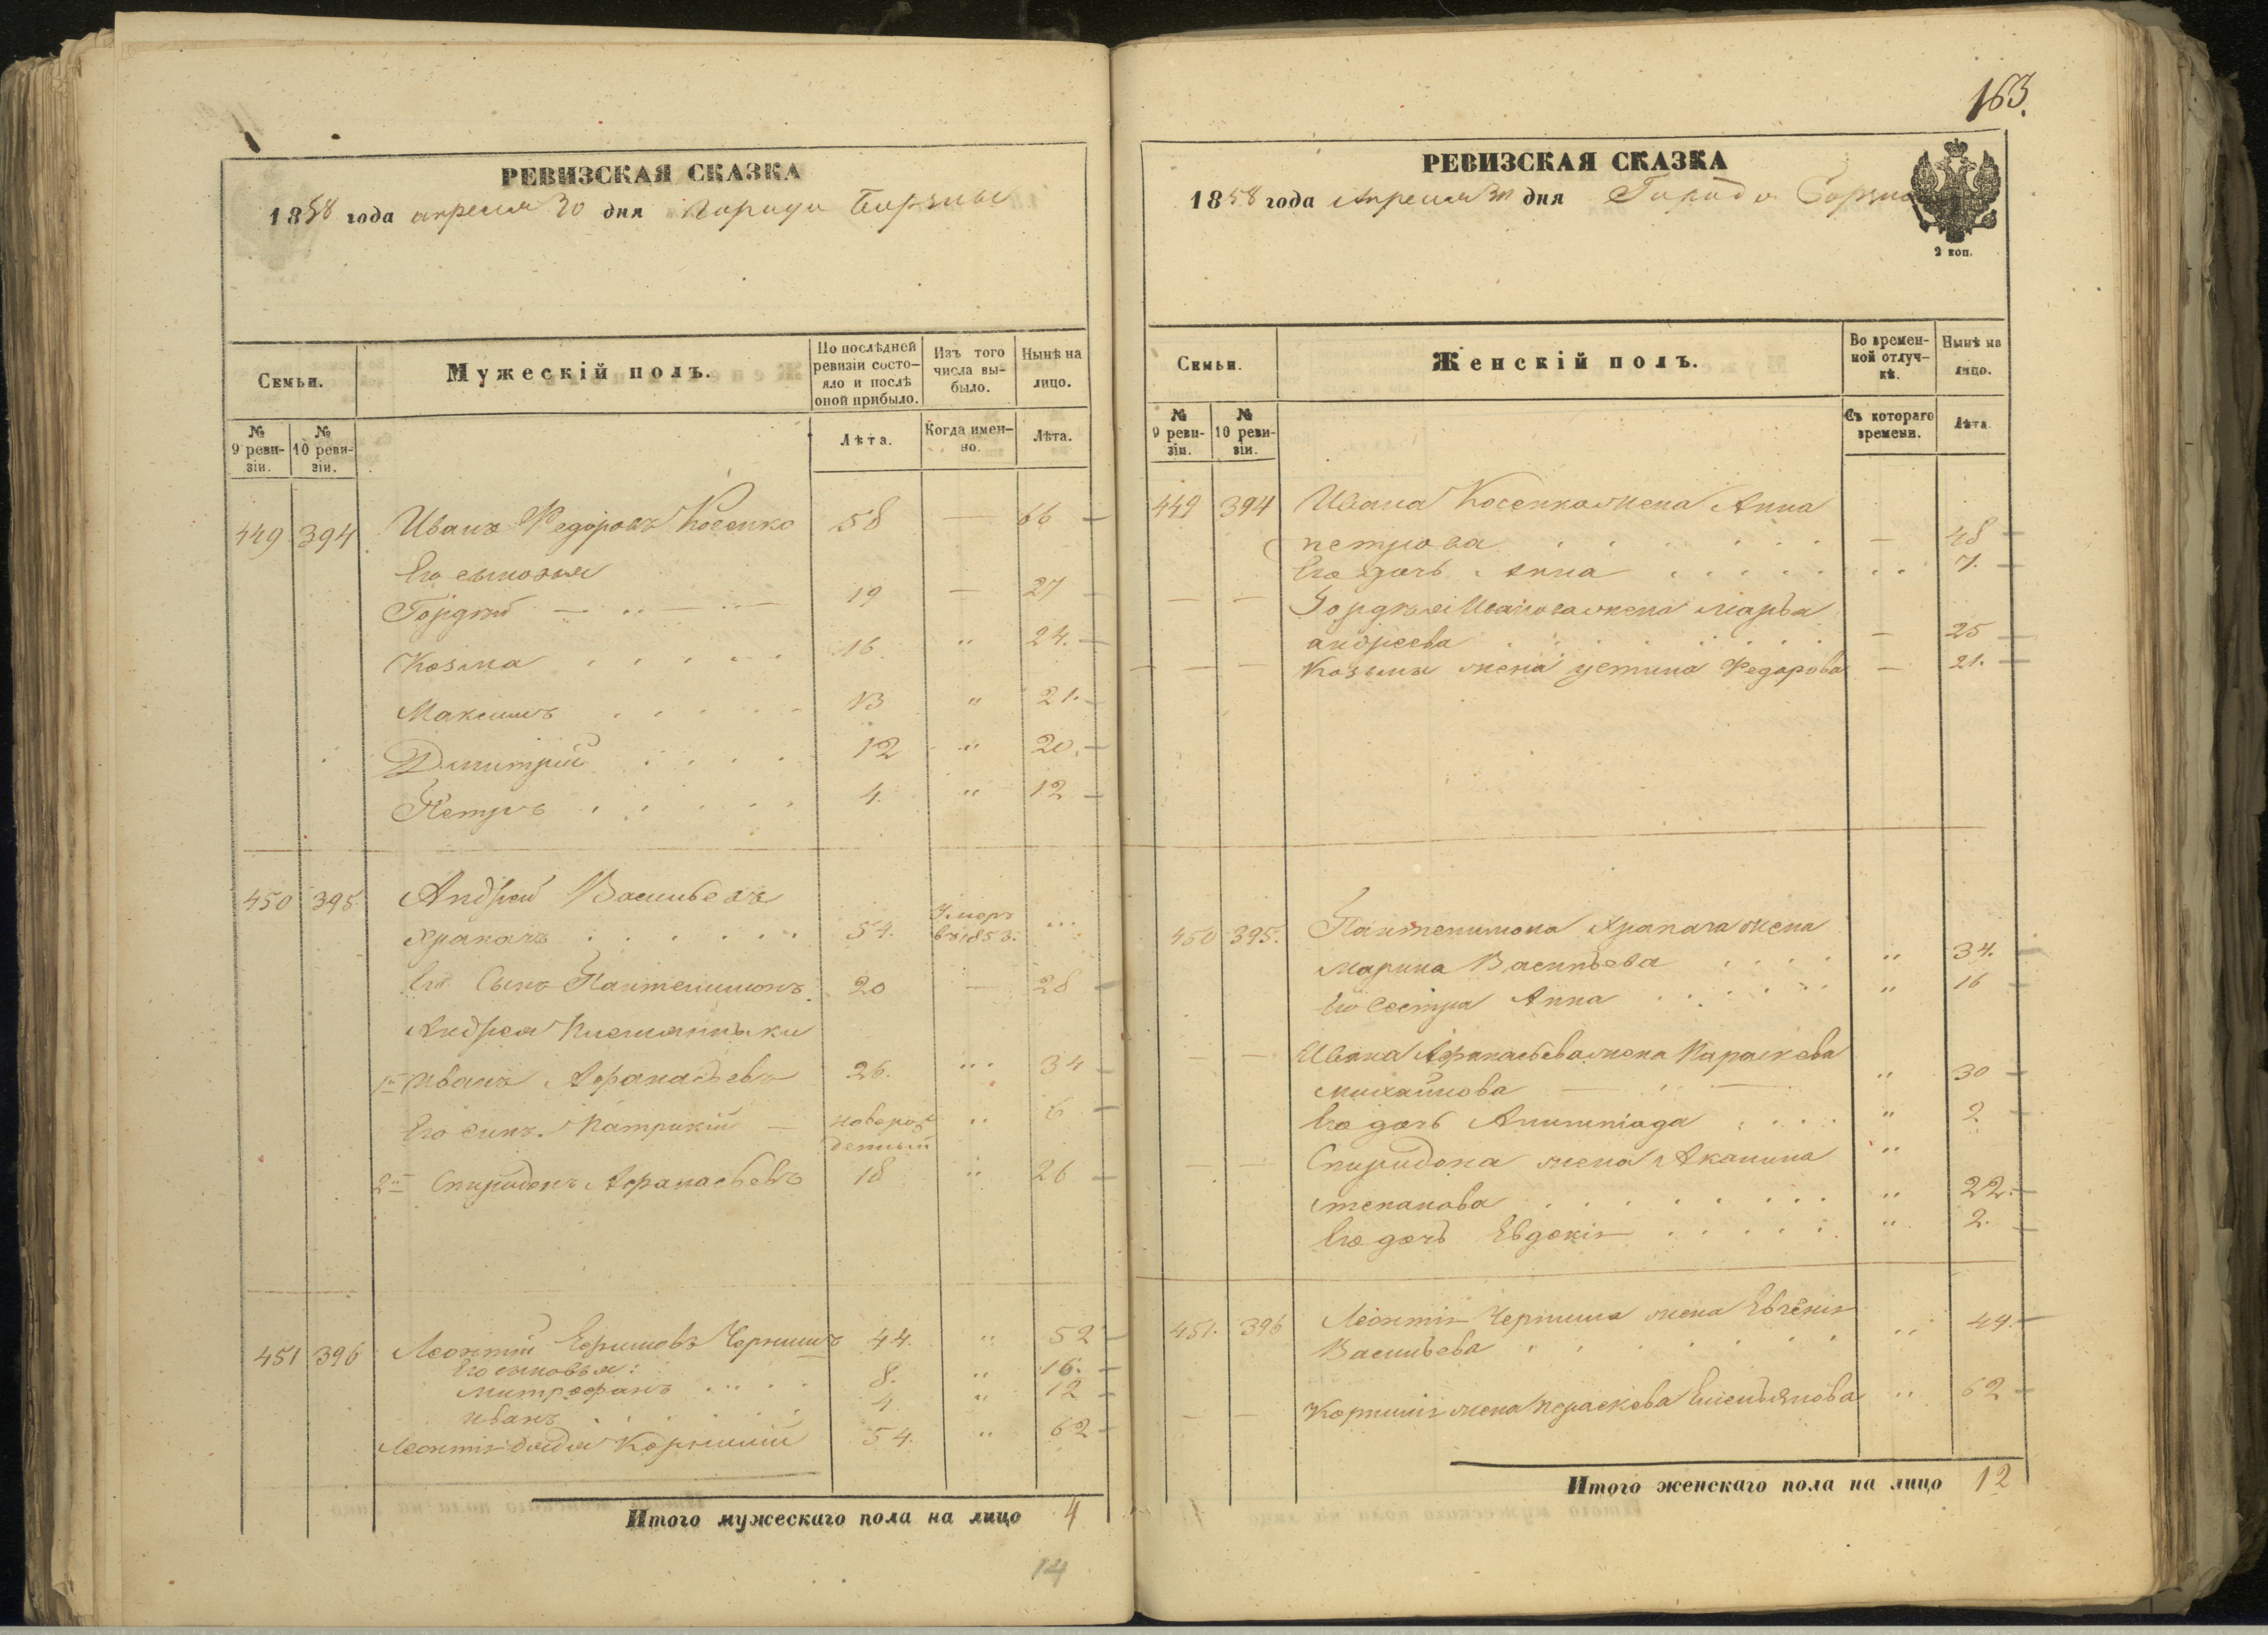 РЕВИЗСКАЯ СКАЗКА
1858 года апреля 30 дня города Борзны
Семьи.
Мужескій полъ.
По послѣдней ревизіи состояло и послѣ оной прибыло.
Изъ того числа выбыло.
Нынѣ на лицо.
№ 9 ревизіи.
№ 10 ревизіи.
Лѣта.
Когда именно.
Лѣта.
449 394 Иванъ Федоровъ Косенко 58 — 66 —
Его сыновья
Гордѣй 19 — 27 —
Козма 16 „ 24. —
Максимъ 13 „ 21. —
Дмитрій 12 „ 20. —
Петръ 4. „ 12 —
450 395 Андрей Васильевъ
Храпачъ 54. Умеръ въ 1853. ...
Его Сынъ Пантелимонъ 20 — 28 —
Андрея племянники
1й Иванъ Афанасьевъ 26. „ 34 —
Его сынъ Патрикій — новорожденный „ 6 —
2й Спиридонъ Афанасьевъ 18 „ 26 —
451 396 Леонтій Ефимовъ Чернышъ 44. „ 52 —
Его сыновья:
Митрофанъ 8. „ 16. —
Иванъ 4. „ 12 —
Леонтія дядя Корнилій 54. „ 62 —
Итого мужескаго пола на лицо 4
14
163.
РЕВИЗСКАЯ СКАЗКА
1858 года Апреля 30 дня Города Борзны
2 коп.
Семьи.
Женскій полъ.
Во временной отлучкѣ.
Нынѣ на лицо.
№ 9 ревизіи.
№ 10 ревизіи.
Съ котораго времени.
Лѣта
449 394 Ивана Косенка жена Анна
петрова — 48 —
Его дочь Анна 7. —
— — Гордѣя Иванова жена марья
андреева — 25 —
— — Козьмы жена устина Федорова — 21. —
450 395. Пантелимона Храпача жена
Марина Васильева „ 34. —
Его Сестра Анна „ 16 —
— — Ивана Афанасьева жена Параскева
михайлова — „ 30 —
Его дочь Алимпіада „ 2 —
— — Спиридона жена Акилина „
степанова „ 22. —
Его дочь Евдокія „ 2. —
451. 396 Леонтія Черныша жена Евгенія
Васильева „ 49. —
— — Корнилія жена Параскева Емельянова „ 62 —
Итого женскаго пола на лицо 12